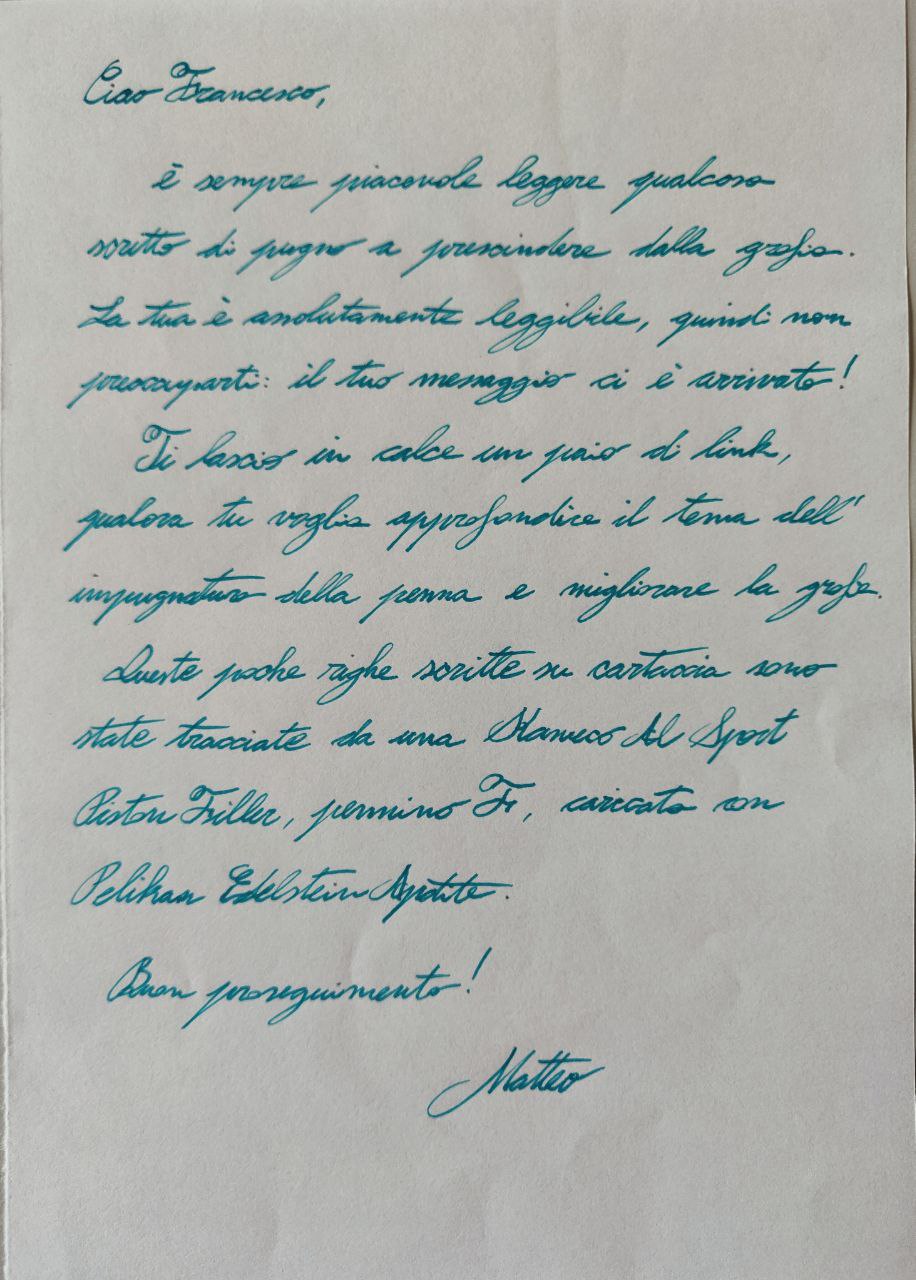 Ciao Francesco,
è sempre piacevole leggere qualcosa
scritto di pugno a prescindere dalla grafia.
La tua è assolutamente leggibile, quindi non
preoccuparti: il tuo messaggio ci è arrivato!
Ti lascio in calce un paio di link,
qualora tu voglia approfondire il tema dell'
impugnatura della penna e migliorare la grafia.
Queste poche righe scritte su cartaccia sono
state tracciate da una Kaweco Al Sport
Piston Filler, pennino F, caricata con
Pelikan Edelstein Apatite.
Buon proseguimento!
Matteo